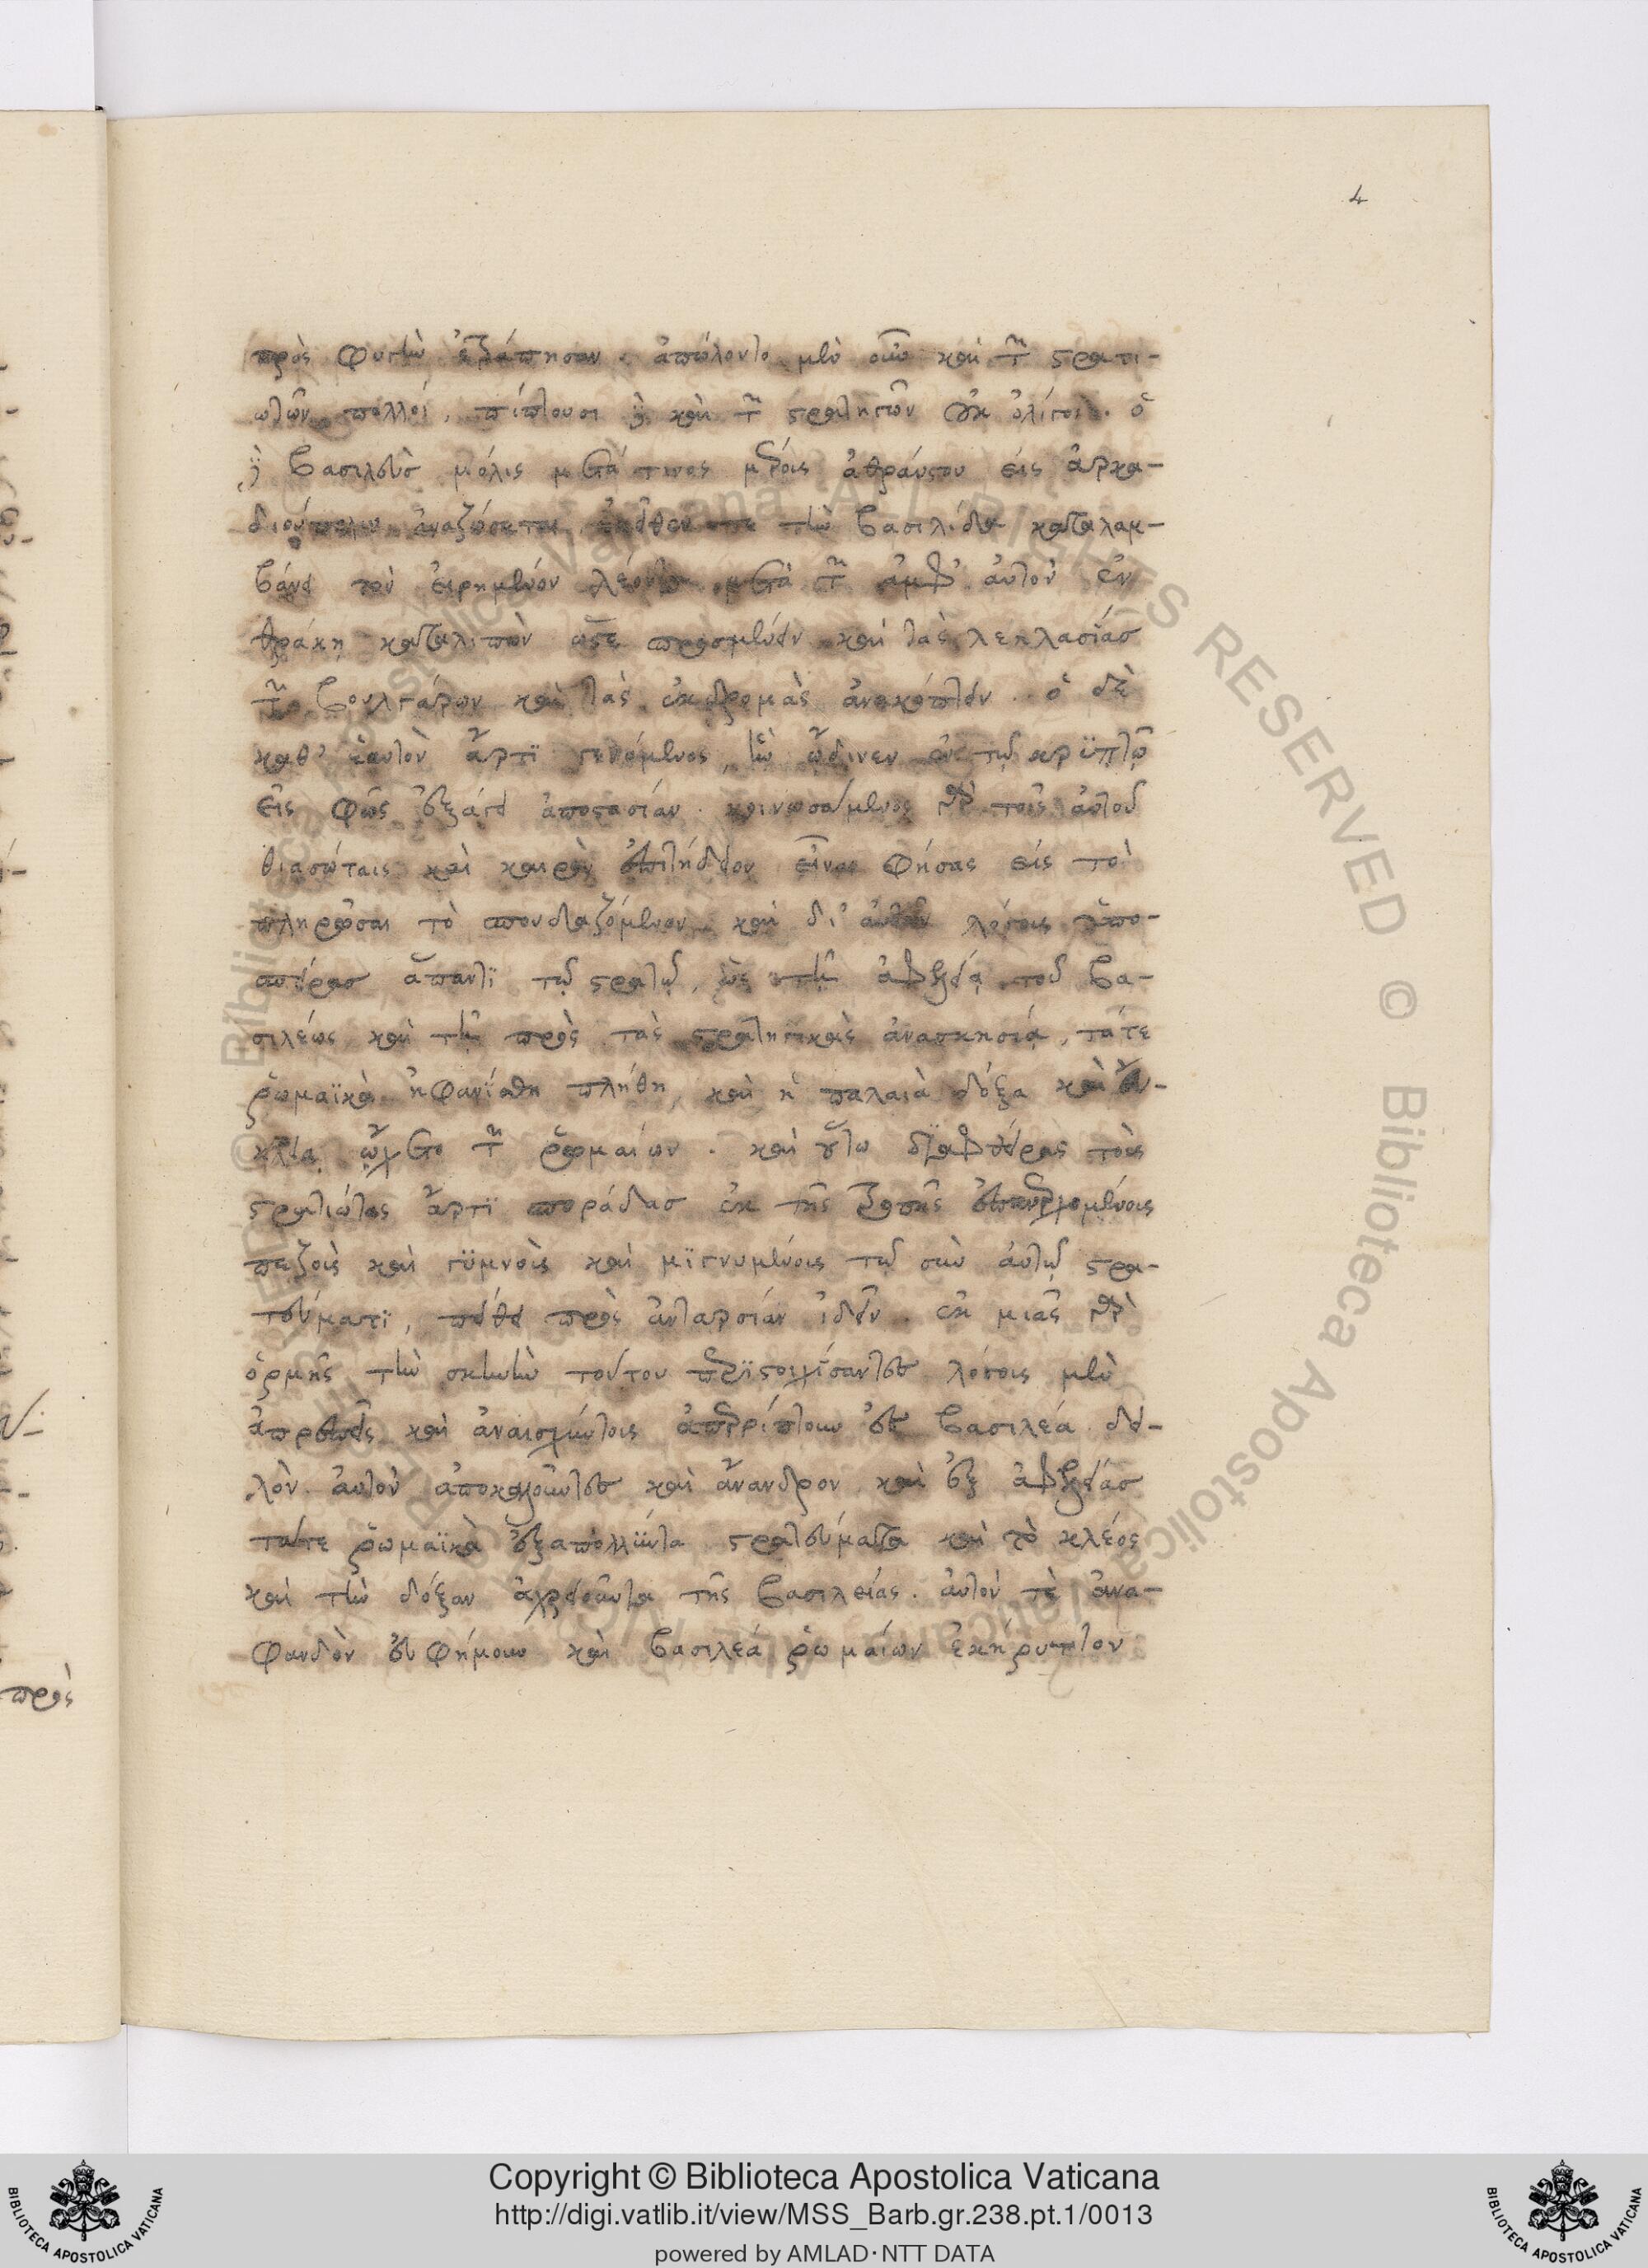 4
πρὸς φυγὴν ἐξώρμησαν. ἀπώλοντο μὲν οὖν καὶ τῶν στρατι-
ωτῶν πολλοί, πίπτουσι δὲ καὶ τῶν στρατηγῶν οὐκ ὀλίγοι. ὁ
δὲ βασιλεὺς μόλις μετά τινος μέρους ἀθραύστου εἰς ἀρκα-
διούπολιν ἀνασώζεται, ἐκεῖθεν τε τὴν βασιλίδα καταλαμ-
βάνει τὸν εἰρημένον λέοντα μετὰ τῶν ἀμφ' αὐτὸν ἐν
θράκη καταλιπὼν ὥστε προσμένειν καὶ τὰς λεηλασίας
τῶν βουλγάρων καὶ τὰς ἐκδρομὰς ἀνακόπτειν. ὁ δὲ
καθ' ἑαυτὸν ἄρτι γενόμενος, ἣν ὤδινεν ἐν τῷ κρυπτῷ
εἰς φῶς ἐξάγει ἀποστασίαν. κοινωσάμενος γὰρ τοῖς αὐτοῦ
θιασώταις καὶ καιρὸν ἐπιτήδειον εἶναι φήσας εἰς τὸ
πληρῶσαι τὸ σπουδαζόμενον, καὶ δι' αὐτῶν λόγους ὑπο-
σπείρας ἅπαντι τῷ στρατῷ, ὡς τῇ ἀβελτείᾳ τοῦ βα-
σιλέως καὶ τῇ πρὸς τὰς στρατηγικὰς ἀνασκησίᾳ, τά τε
ῥωμαϊκὰ ἠφανίσθη πλήθη, καὶ ἡ παλαιὰ δόξα καὶ εὔ-
κλεια ᾤχετο τῶν ῥωμαίων. καὶ οὕτω διαφθείρας τοὺς
στρατιώτας ἄρτι σποράδας ἐκ τῆς τροπῆς ἐπανερχομένους
πεζοὺς καὶ γυμνοὺς καὶ μιγνυμένους τῷ σὺν αὐτῷ στρα-
τεύματι, πείθει πρὸς ἀνταρσίαν ἰδεῖν. ἐκ μιᾶς γὰρ
ὁρμῆς τὴν σκηνὴν τούτου περιστοιχίσαντες λόγοις μὲν
ἀπρεπέσι καὶ ἀναισχύντοις ἀπερρίπτουν ἐς βασιλέα δει-
λὸν αὐτὸν ἀποκαλοῦντες καὶ ἄνανδρον καὶ ἐξ ἀβελτείας
τά τε ῥωμαϊκὰ ἐξαπολλύντα στρατεύματα καὶ τὸ κλέος
καὶ τὴν δόξαν ἀχρειοῦντα τῆς βασιλείας. αὐτὸν τὲ ἀνα-
φανδὸν εὐφήμουν καὶ βασιλέα ῥωμαίων ἐκήρυττον
πρὸς
BIBLIOTECA APOSTOLICA VATICANA
Copyright © Biblioteca Apostolica Vaticana
http://digi.vatlib.it/view/MSS_Barb.gr.238.pt.1/0013
powered by AMLAD·NTT DATA
BIBLIOTECA APOSTOLICA VATICANA